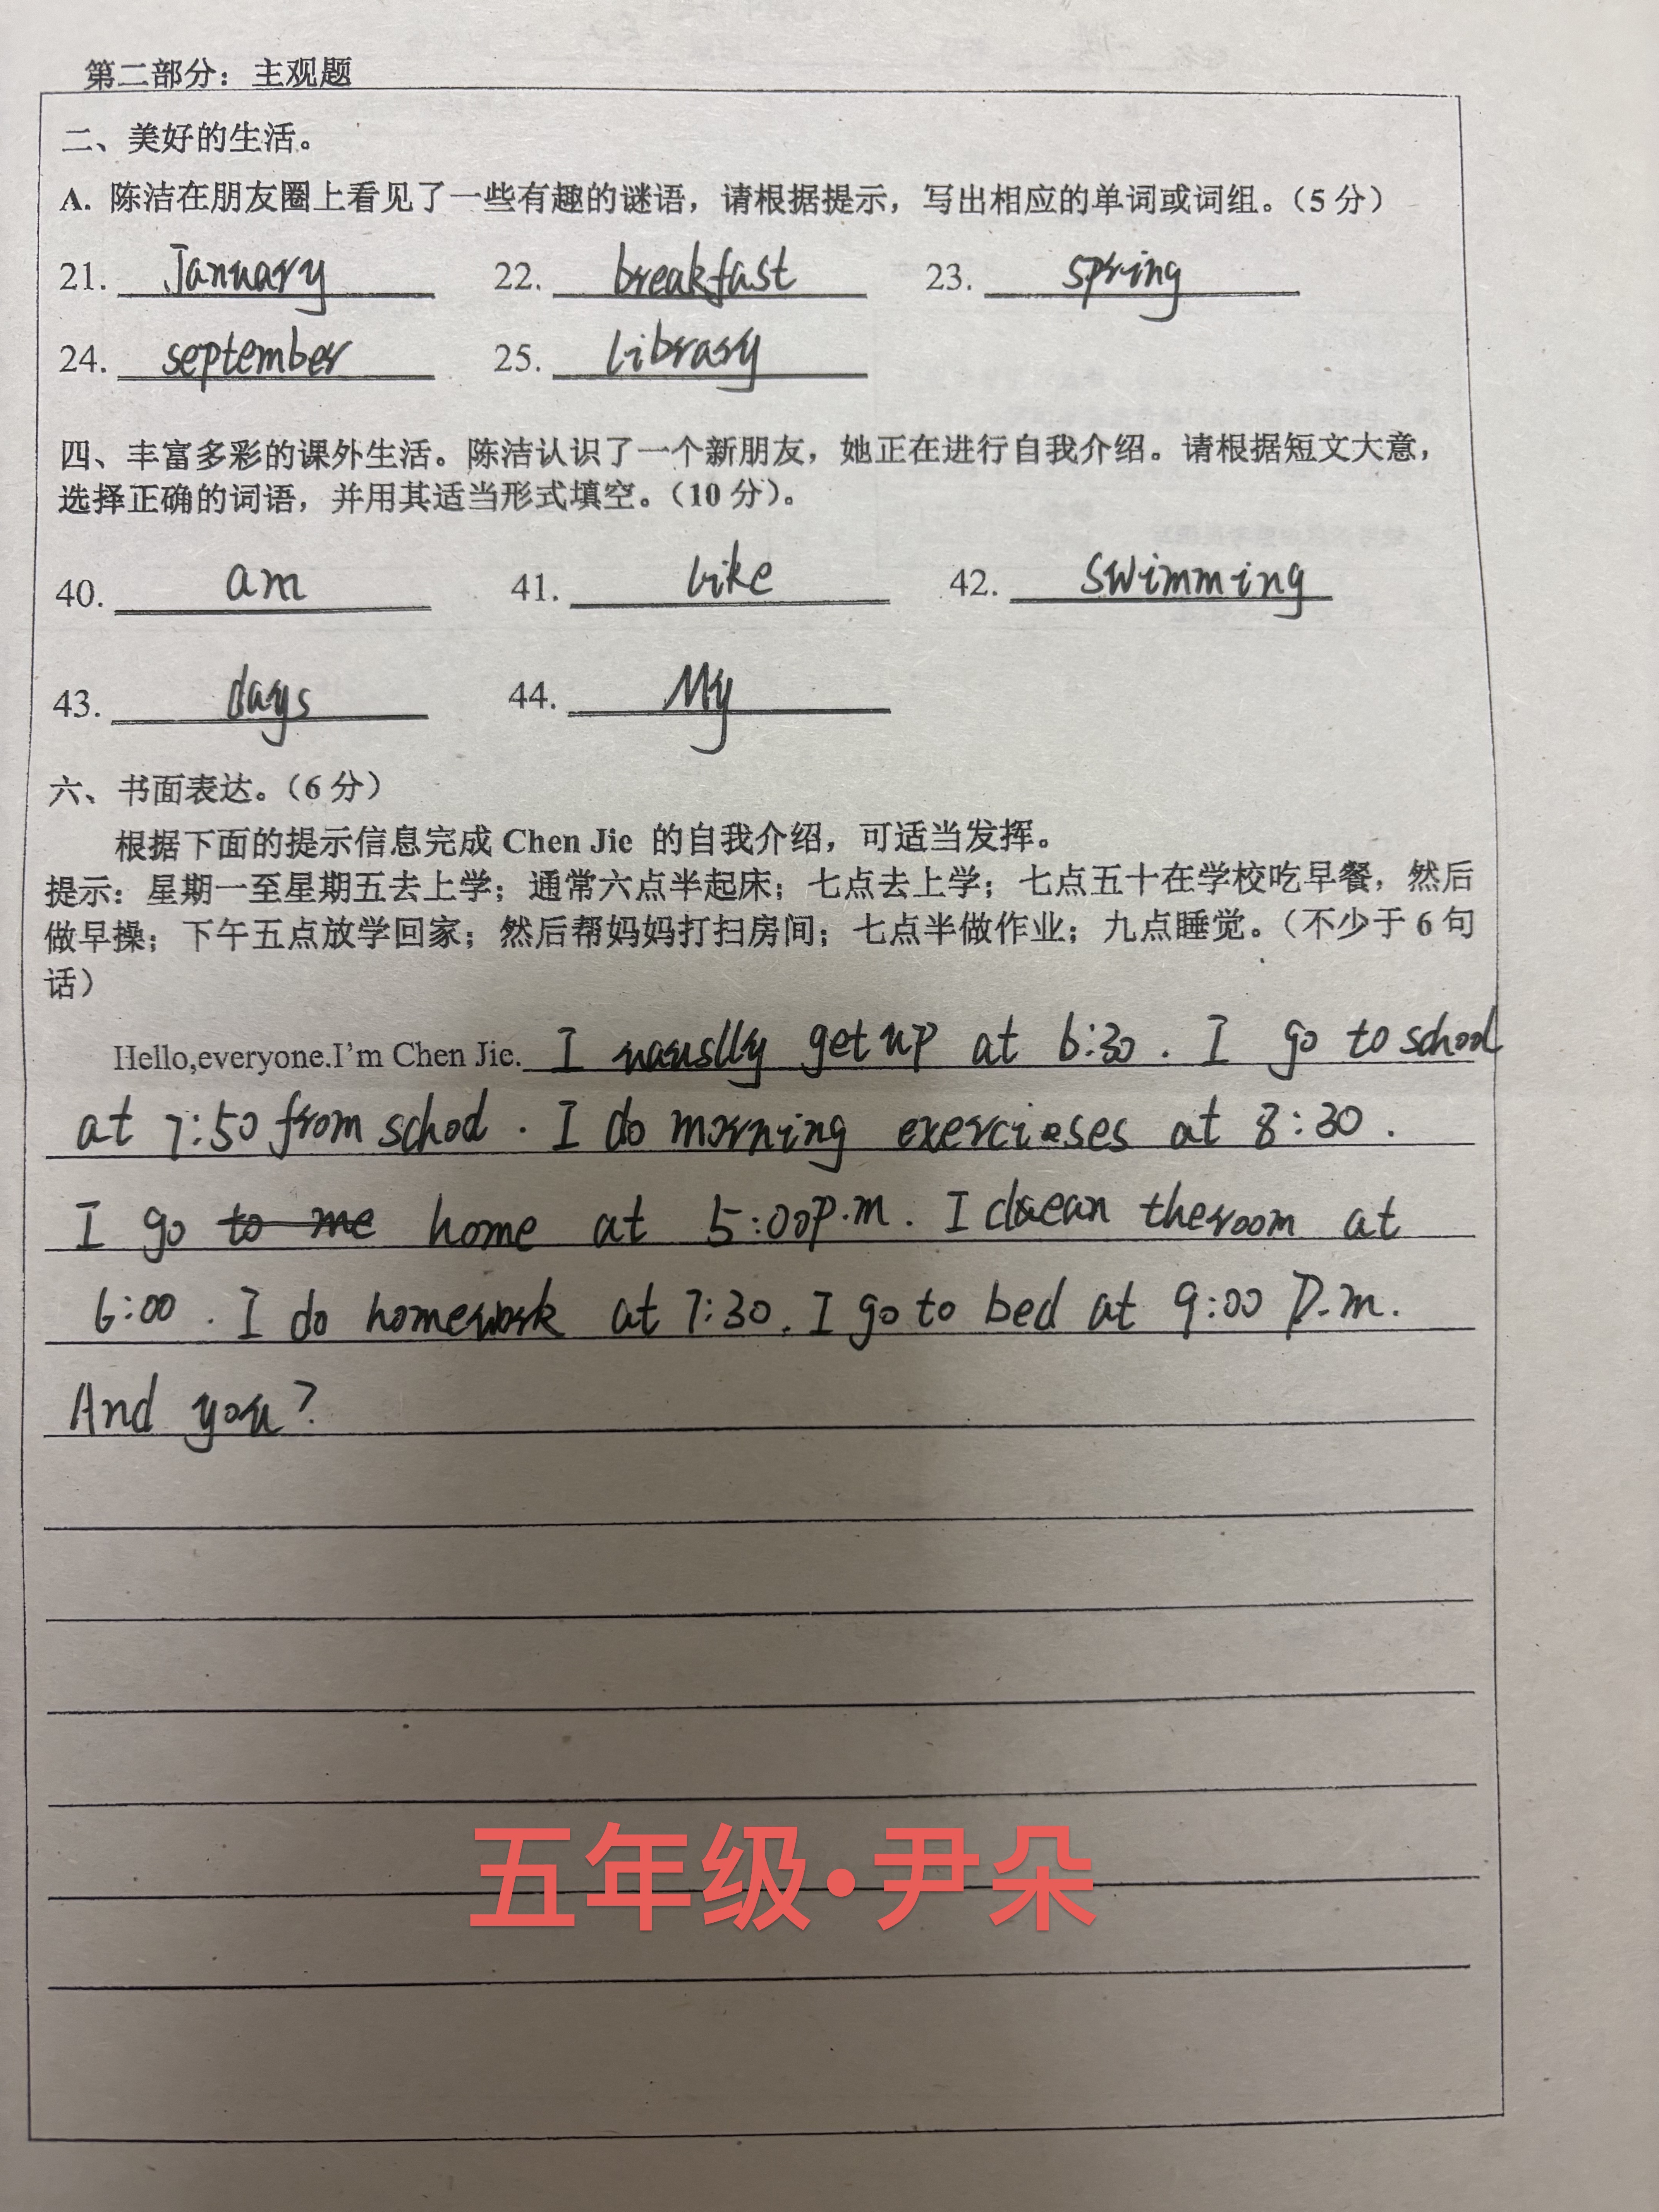 第二部分：主观题
二、美好的生活。
A. 陈洁在朋友圈上看见了一些有趣的谜语，请根据提示，写出相应的单词或词组。（5 分）
21. January 22. breakfast 23. spring
24. september 25. library
四、丰富多彩的课外生活。陈洁认识了一个新朋友，她正在进行自我介绍。请根据短文大意，
选择正确的词语，并用其适当形式填空。（10 分）。
40. am 41. like 42. swimming
43. days 44. My
六、书面表达。（6 分）
根据下面的提示信息完成 Chen Jie 的自我介绍，可适当发挥。
提示：星期一至星期五去上学；通常六点半起床；七点去上学；七点五十在学校吃早餐，然后
做早操；下午五点放学回家；然后帮妈妈打扫房间；七点半做作业；九点睡觉。（不少于 6 句
话）
Hello,everyone.I'm Chen Jie. I get up at 6:30. I go to school
at 7:50 from school. I do morning exercieses at 8:30.
I go to me home at 5:00p.m. I the room at
6:00. I do homework at 7:30. I go to bed at 9:00 p.m.
And you?
五年级·尹朵